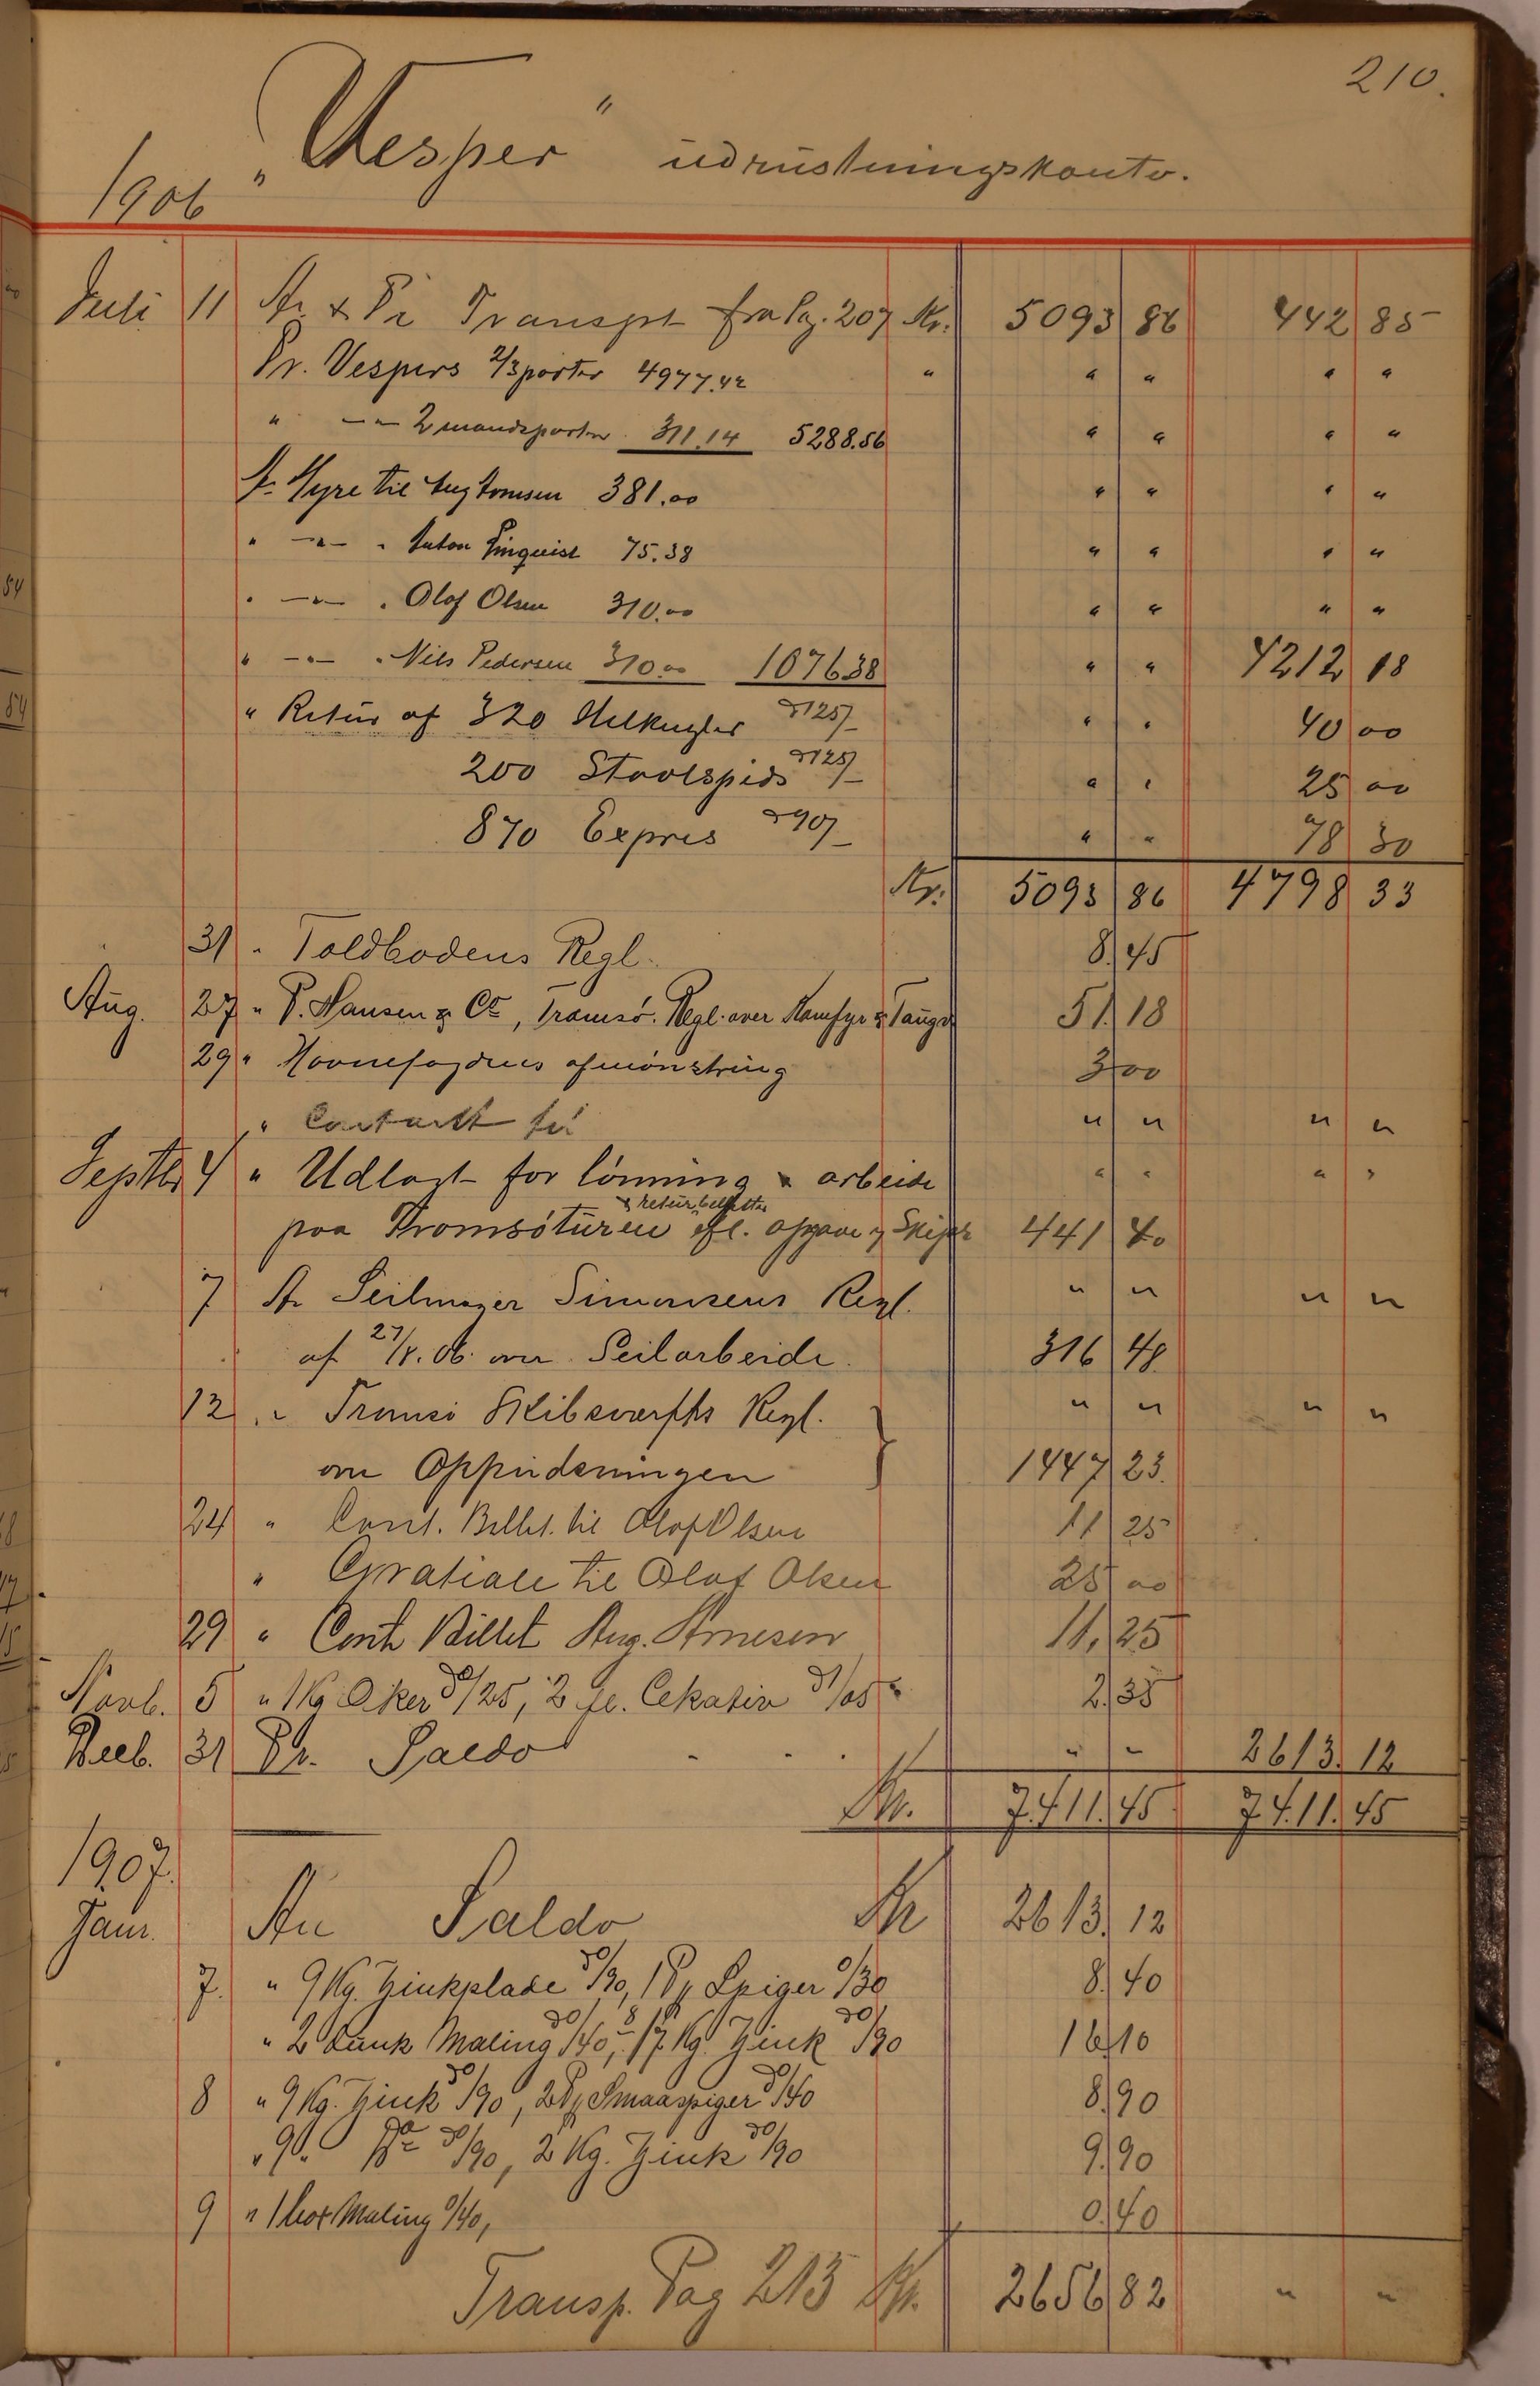 210.
"Vesper" udrustningskonto.
1906
Juli 11 An & Pr Transpt fra Pg. 207 Kr. 5093 86 442 85
Pr. Vespers 2/3 parter 4977.42 " " " " "
" -"- 2 mandsparter 311.14 5288.56 " " " "
An Hyre til 381.00 " " " "
" -"- " Anton 75.38 " " " "
" -"- " Olof Olsen 310.00 " " " "
" -"- " Nils Pedersen 310.00 1076.38 " " 4212 18
" Retur af 320 Helkugler à 125/- " " 40 00
200 Staalspids à 125/- " " 25 00
870 Expres à 90/- " " 78 30
Kr. 5093 86 4798 33
31 " Toldbodens Regl. 8 45
Aug. 27 " P. Hansen & Co, Tromsø. Regl. over Kamfyr & Tauger 51 18
29 " Havnefogdens afmønstring 3 00
" " " "
Septbr 4 " Udlagt for lønning & arbeide " " " "
& retur billetter
paa Tromsøturen efl. opgave af Skipr 441 80
7 An Seilmager Simonsens Regl. " " " "
af 27/8.06 over Seilarbeide. 316 48
12 " Tromsø Skibsværfts Regl. " " " "
om Oppudsningen } 1447 23
24 " Cont. Billet til Olof Olsen 11 25
" Gratiale til Olof Olsen 25 00
29 " Cont Billet Aug. Arnesen 11,25
Novb. 5 " 1 Kg Oker à /25, 2 fl. Cekativ à 1/05 2 35
Decb. 31 Pr. Saldo " " 2613. 12
Kr. 7.411.45 7411.45
1907.
Janr. An Saldo Kr 2613. 12
7. " 9 Kg. Zinkplade à /90, 1 Pk Spiger 0/30 8 40
" 2 Maling à /40, 17 Kg. Zink à /90 16 10
8 " 9 Kg. Zink à /90, 2 Pk Smaaspiger à /40 8 90
" 9 " Do à /90, 2 Kg. Zink à /90 9.90
9 " 1 box Maling 0/40, 0 40
Transp. Pag 213 Kr. 2656 82 " "